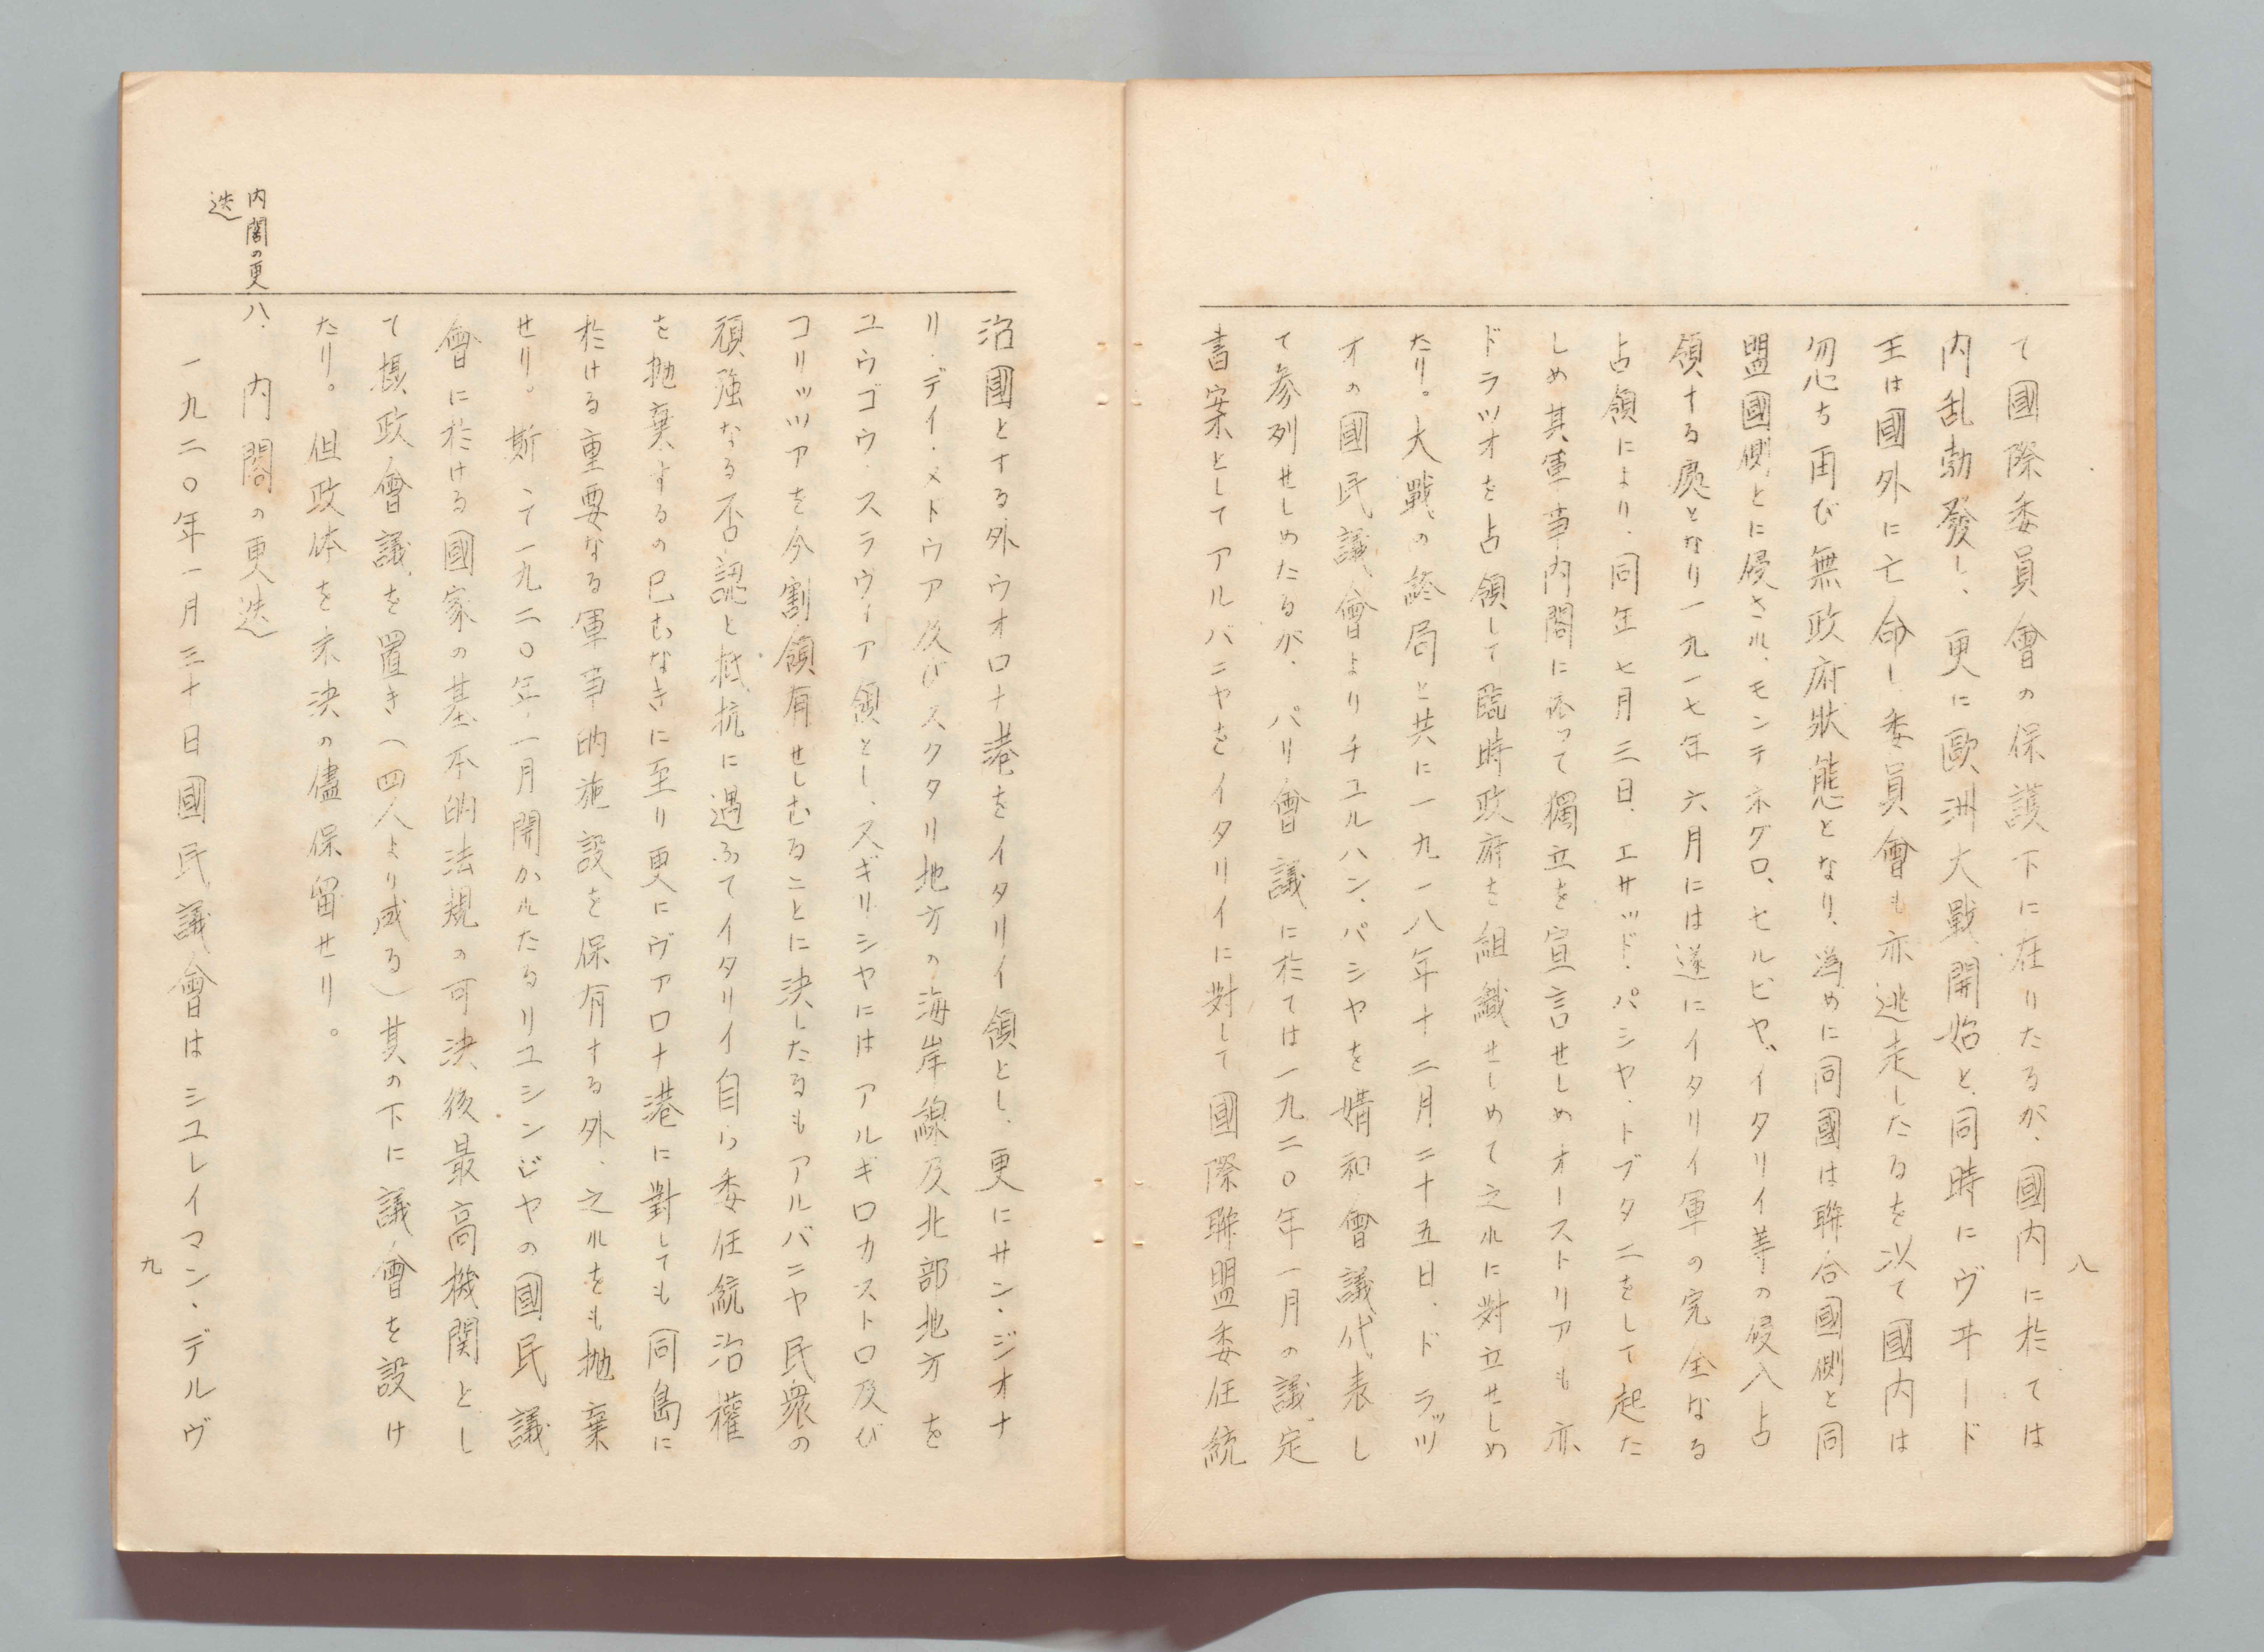 八
て國際委員會の保護下に在りたるが、國内に於ては
内乱勃發し、更に歐洲大戰開始と同時にヴヰード
王は國外に亡命し委員會も亦逃走したるを以て國内は
忽ち再び無政府狀態となり、為めに同國は聯合國側と同
盟國側とに侵さル、モンテネグロ、セルビヤ、イタリイ等の侵入占
領する處となり一九一七年六月には遂にイタリイ軍の完全なる
占領により、同年七月三日、エサッド・パシヤ・トプタニをして起た
しめ其軍事内閣に依って獨立を宣言せしめオーストリアも亦
ドラツオを占領して臨時政府を組織せしめて之ルに對立せしめ
たり。大戰の終局と共に一九一八年十二月二十五日、ドラッツ
オの國民議會よりチユルハン、パシヤを媾和會議代表し
て参列せしめたるが、パリ會議に於ては一九二〇年一月の議定
書案としてアルバニヤをイタリイに対して國際聯盟委任統
治國とする外ウオロナ港をイタリイ領とし、更にサン・ジオナ
リ・デイ・メドウア及びスクタリ地方の海岸線及北部地方を
ユウゴウ・スラヴィア領とし、スギリシヤにはアルギロカストロ及び
コリッツアを分割領有せしむることに決したるもアルバニヤ民衆の
頑強なる否認と抵抗に遇ふてイタリイ自ら委任統治權
を抛棄するの已むなきに至り更にヴアロナ港に對しても同島に
於ける重要なる軍事的施設を保有する外、之ルをも抛棄
せり。斯くて一九二〇年一月開かルたるリユシンビヤの國民議
會に於ける國家の基本的法規の可決後最高機関とし
て摂政會議を置き（四人より成る）其の下に議會を設け
たり。但政体を未決の儘保留せり。
内閣の更
迭
八. 内閣の更迭
一九二〇年一月三十日國民議會はシユレイマン・デルヴ
九